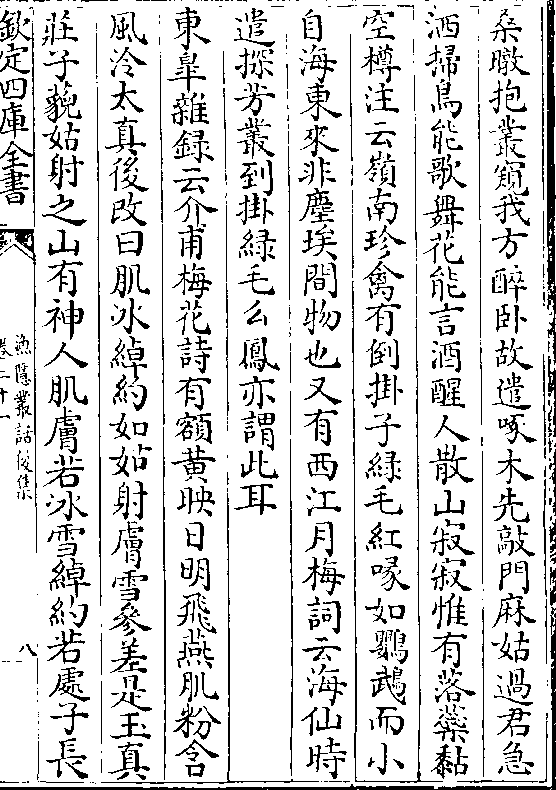 桑暾抱叢窺我方醉卧故遣啄木先敲門麻姑過君急
洒掃鳥能歌舞花能言酒醒人散山寂寂惟有落蘂黏
空樽注云嶺南珍禽有倒掛子緑毛紅喙如鸚鵡而小
自海東來非塵埃間物也又有西江月梅詞云海仙時
遣探芳叢到掛緑毛么鳳亦謂此耳
東臯雜録云介甫梅花詩有額黄映日明飛燕肌粉含
風冷太真後改曰肌冰綽約如姑射膚雪參差是玉真
莊子藐姑射之山有神人肌膚若冰雪綽約若處子長
欽定四庫全書
漁隱叢話後集
卷二十一
八